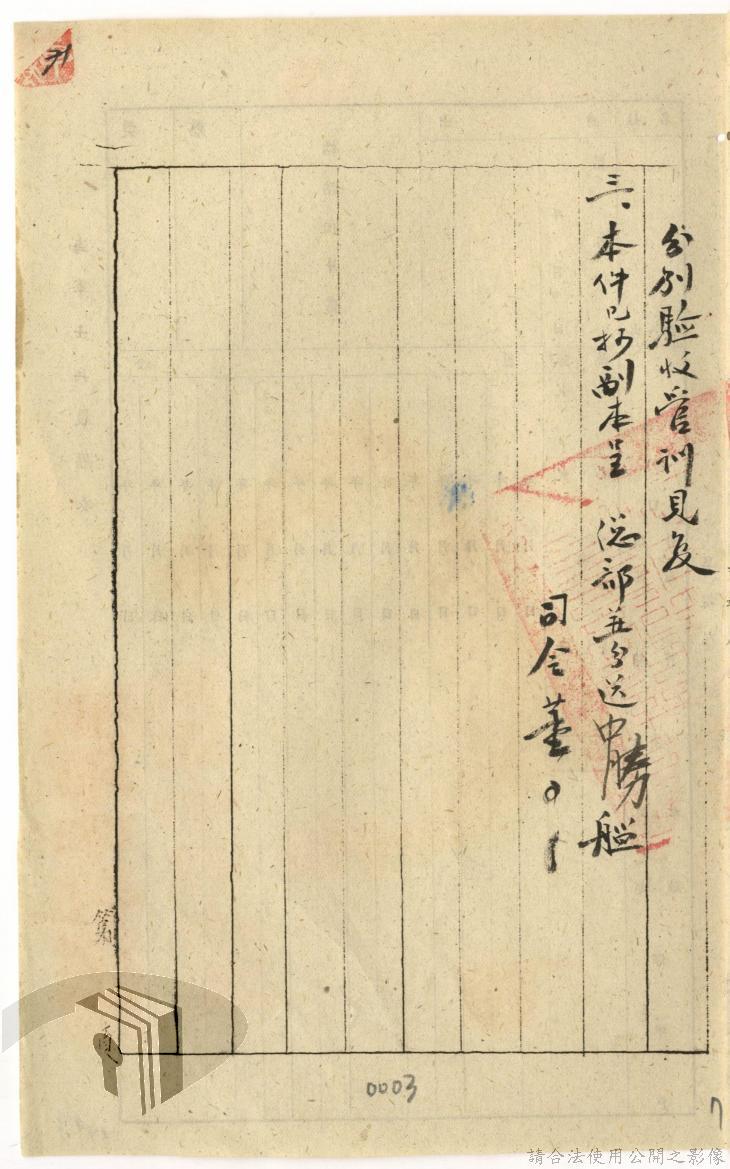 分別驗收管訓見复
三、本件已抄副本呈 总部並分送中勝艇
司令董
第
頁
0003
請合法使用公開之影像